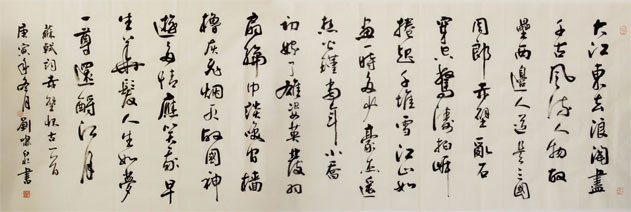 大江東去浪淘盡
千古風流人物故
壘西邊人道是三國
周郎赤壁亂石
穿空驚濤拍岸
捲起千堆雪江山如
畫一時多少豪傑遙
想公瑾當年小喬
初嫁了雄姿英發羽
扇綸巾談笑間檣
櫓灰飛煙滅故國神
遊多情應笑我早
生華髮人生如夢
一尊還酹江月
蘇軾詞赤壁懷古一首
庚寅年冬月劉書